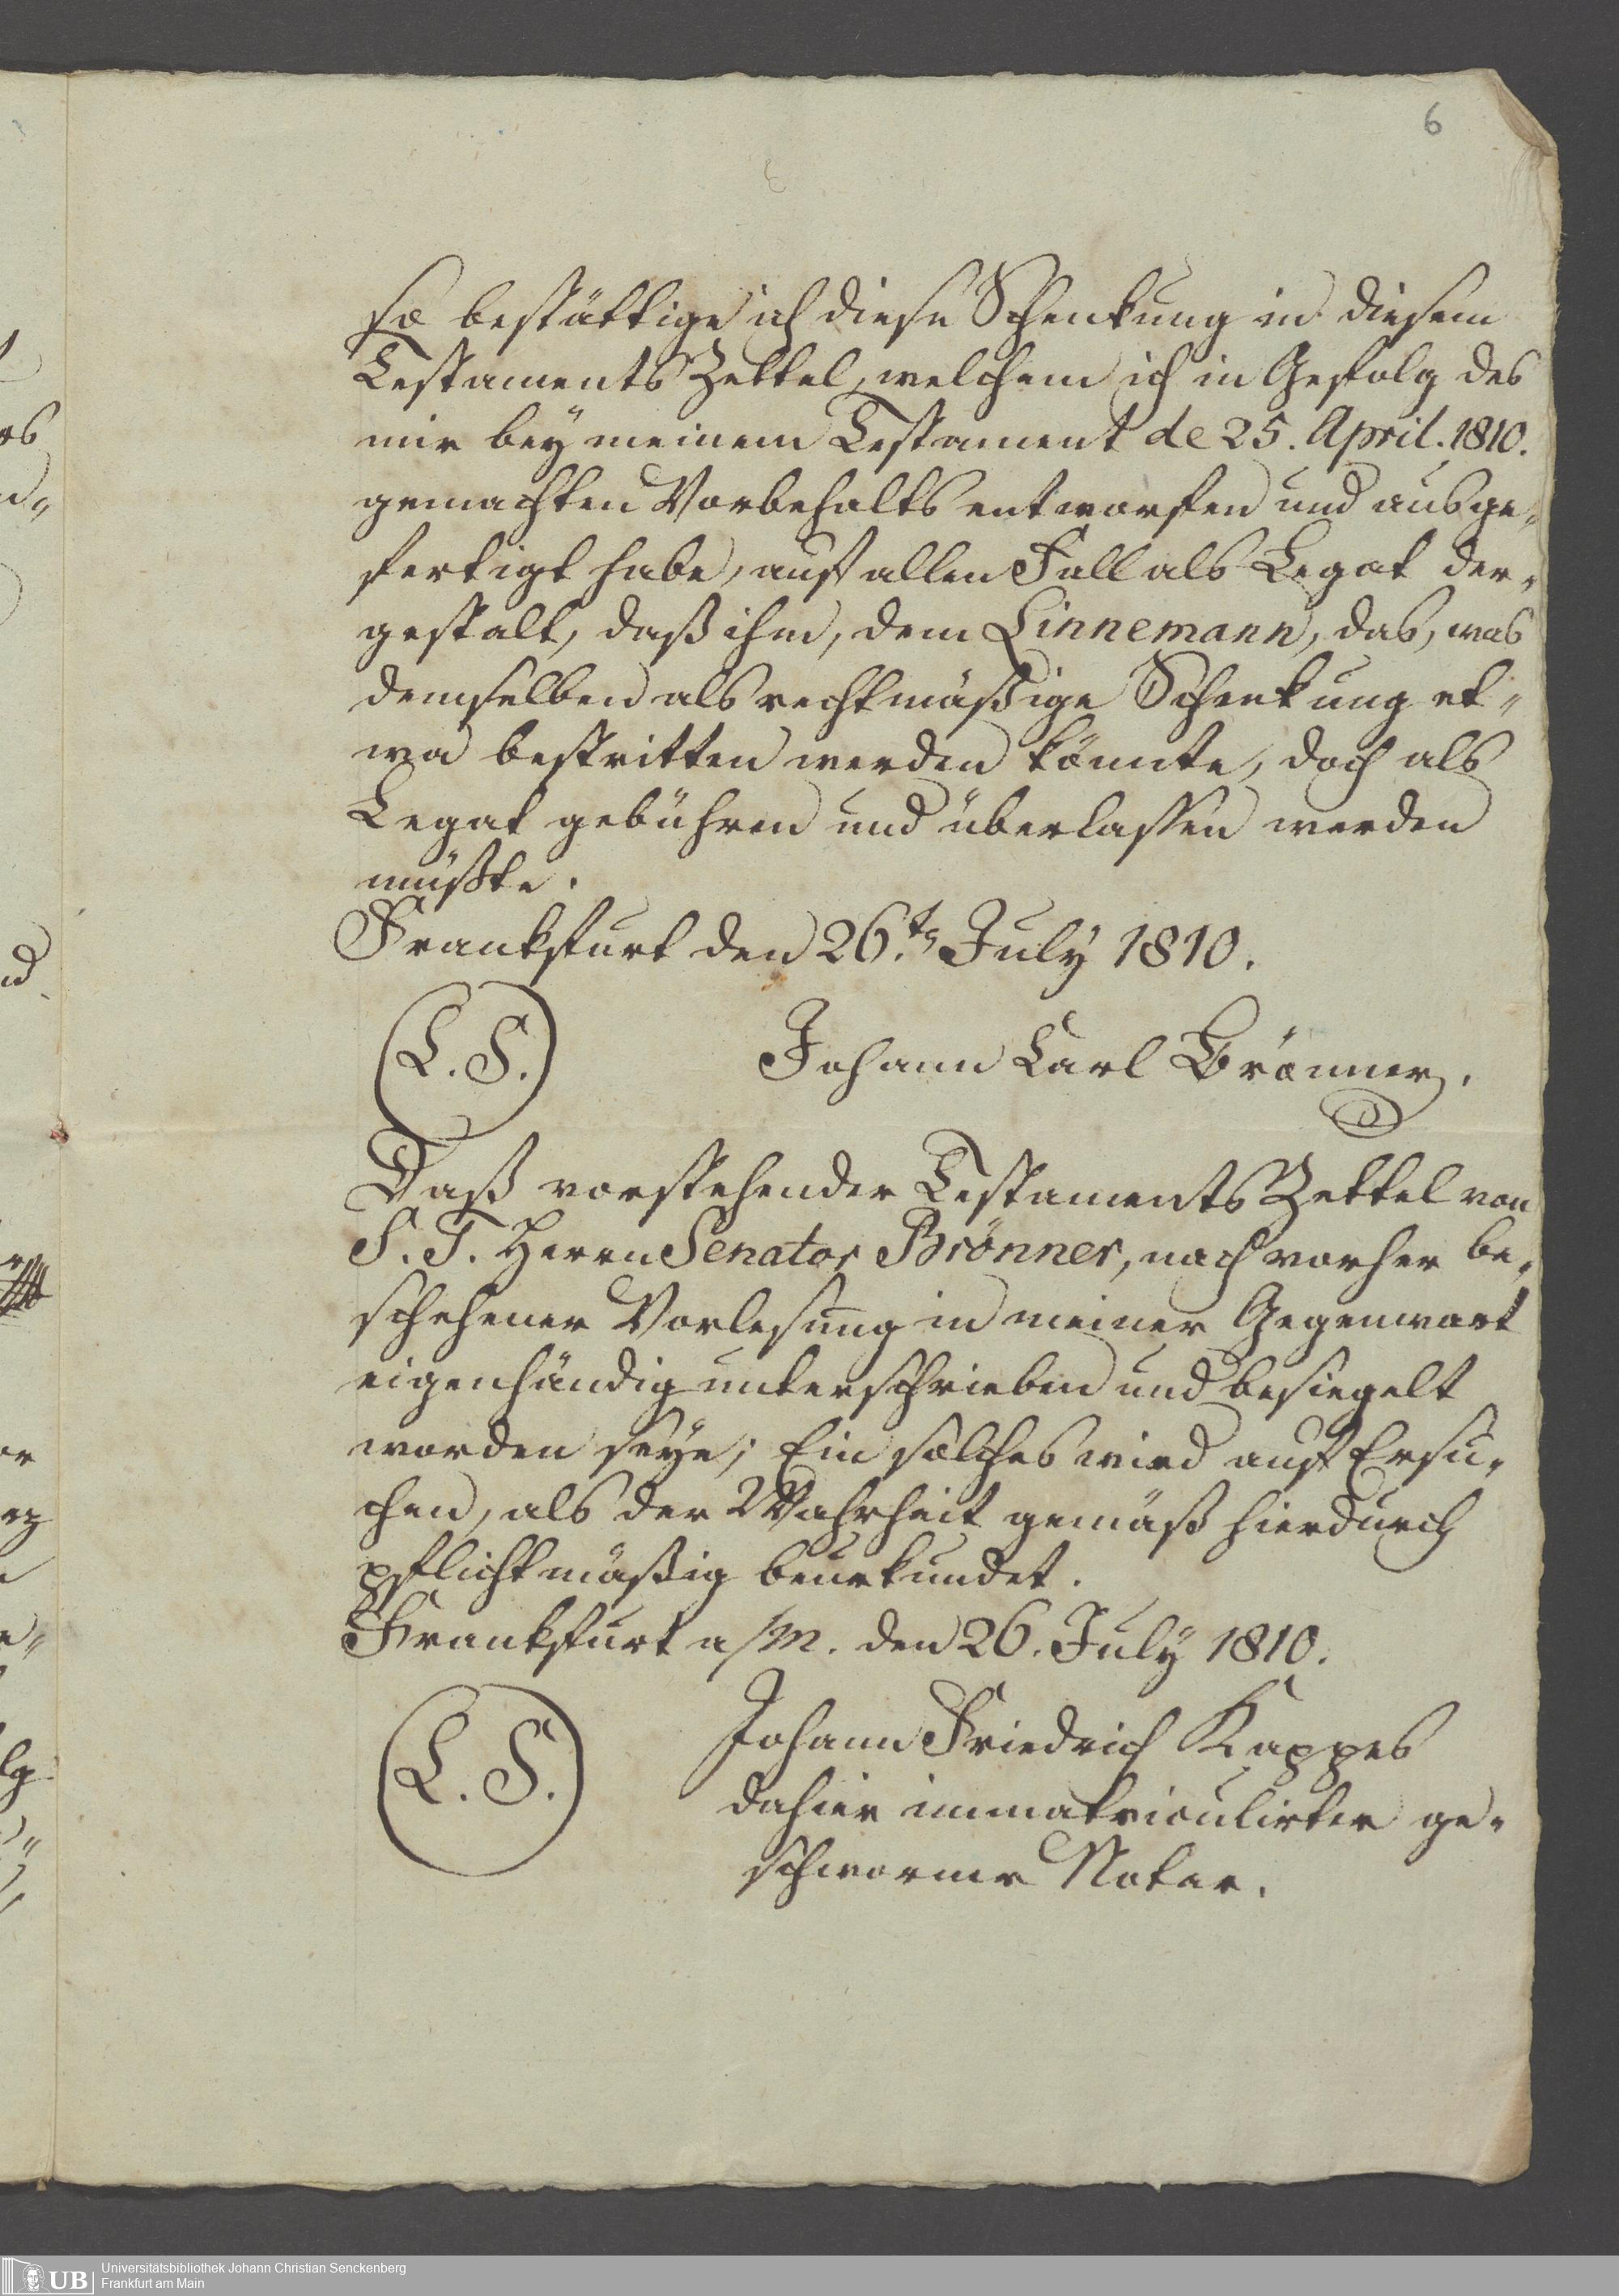 6
so bestättige ich diese Schenkung in diesem
Testaments Zettel, welchem ich in Gefolg des
mir bey meinem Testament de 25. April. 1810.
gemachten Vorbehalts entworfen und ausge„
fertigt habe, auf allen Fall als Legat der„
gestalt, daß ihm, dem Linnemann, das, was
demselben als rechtmäßige Schenkung et„
wa bestritten werden könnte, doch als
Legat gebühren und überlassen werden
müßte.
Frankfurt den 26.ten July 1810.
(L. S.) Johann Carl Brönner.
Daß vorstehender Testaments Zettel von
S. T. Herrn Senator Brönner, nach vorher be„
schehener Vorlesung in meiner Gegenwart
eigenhändig unterschrieben und besiegelt
worden seye; Ein solches wird auf Ersu„
chen, als der Wahrheit gemäß hierdurch
pflichtmäßig beurkundet.
Frankfurt a/M. den 26. July 1810.
(L. S.) Johann Friedrich Kappes
dahier immatriculirter ge„
schworner Notar.
UB Universitätsbibliothek Johann Christian Senckenberg
Frankfurt am Main